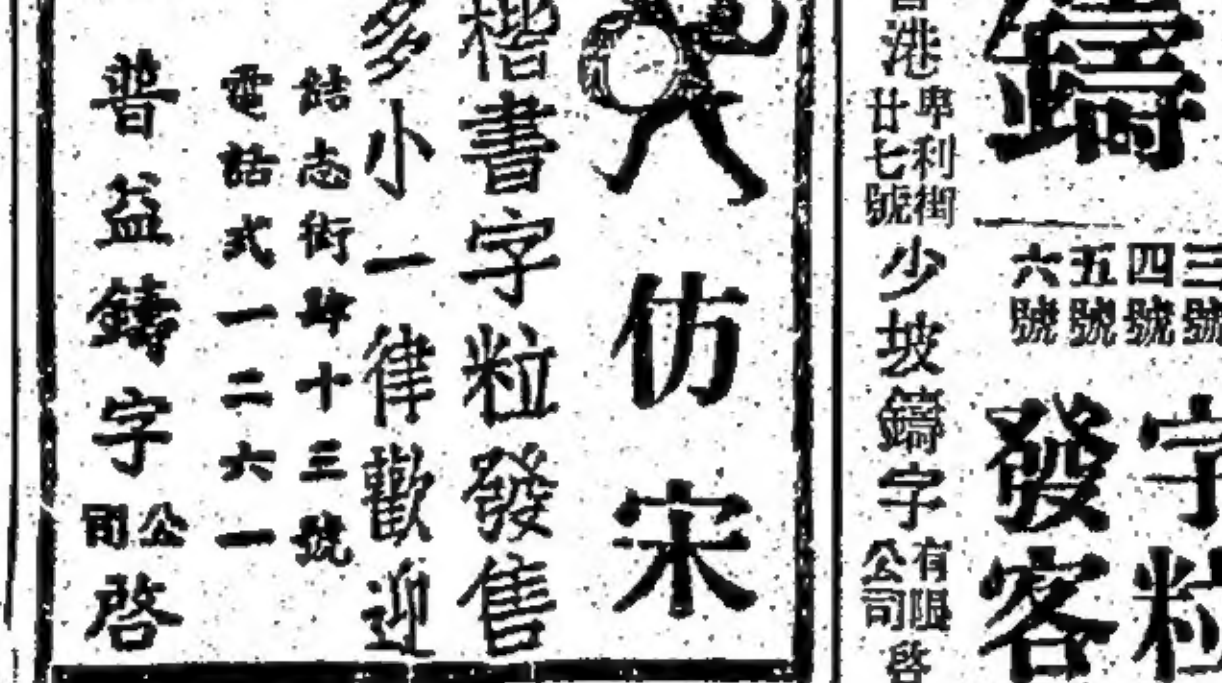 字粒
鑄
發客
三號
四號
五號
六號
香港卑利街廿七號少坡鑄字有限公司啓
仿宋
楷書字粒發售
多小一律歡迎
結志街肆十三號
電話式一二六一
普益鑄字公司啓